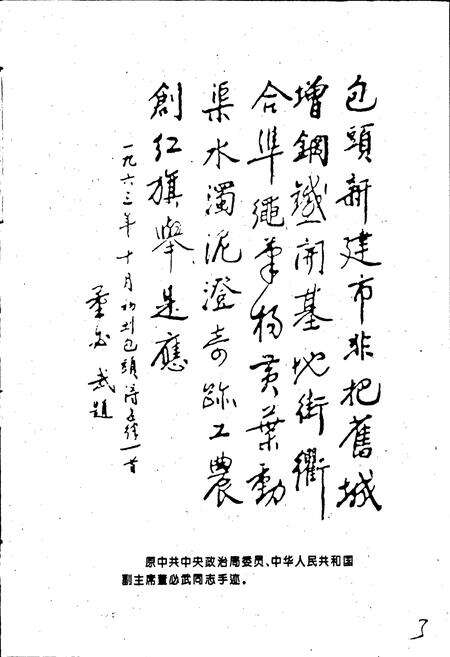 包頭新建市非把舊城
增鋼鐵開基地街衢
合準繩楊黃葉動
渠水濁泥澄奇跡工農
創红旗舉是應
一九六三年十月初到包頭得五律一首
董必武題
原中共中央政治局委员、中华人民共和国
副主席董必武同志手迹。
3